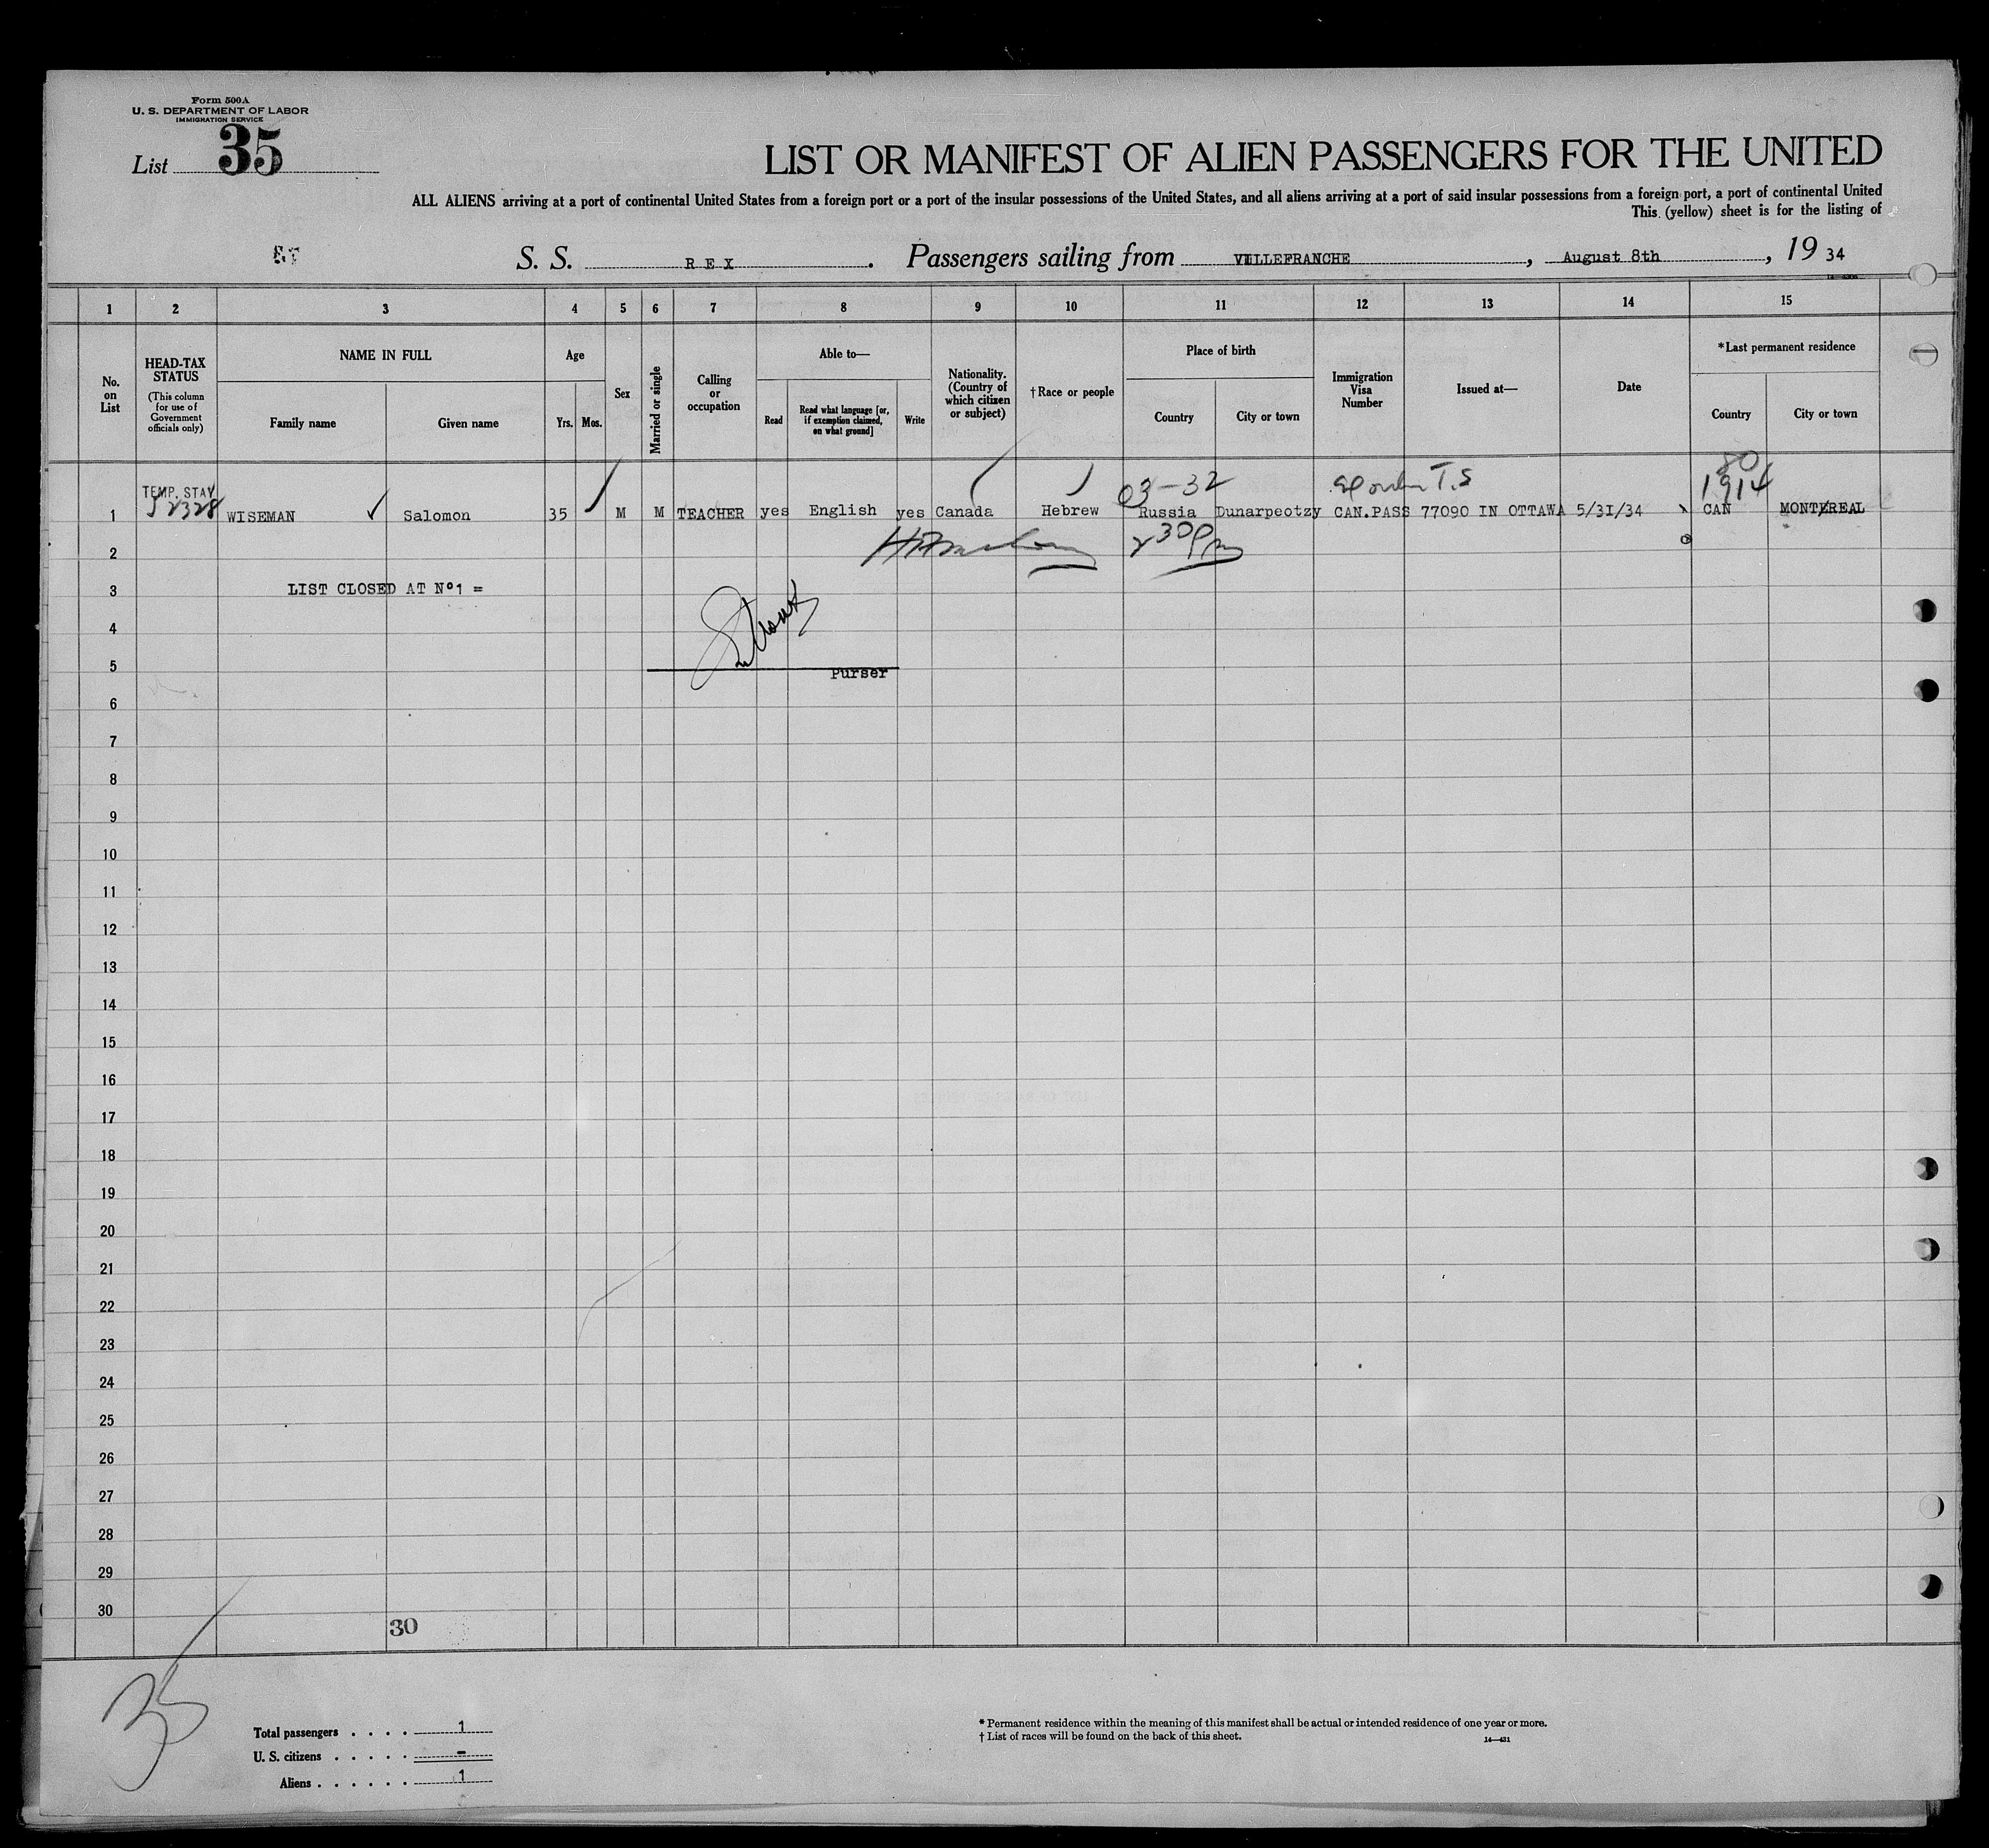 Form 500A
U. S. DEPARTMENT OF LABOR
IMMIGRATION SERVICE
List 35
LIST OR MANIFEST OF ALIEN PASSENGERS FOR THE UNITED
ALL ALIENS arriving at a port of continental United States from a foreign port or a port of the insular possessions of the United States, and all aliens arriving at a port of said insular possessions from a foreign port, a port of continental United
This (yellow) sheet is for the listing of
S. S. REX. Passengers sailing from VILLEFRANCHE, August 8th, 19 34
1 2 3 4 5 6 7 8 9 10 11 12 13 14 15
No. on List
HEAD-TAX STATUS
(This column for use of Government officials only)
NAME IN FULL
Family name Given name
Age
Yrs. Mos.
Sex
Married or single
Calling or occupation
Able to—
Read
Read what language [or, if exemption claimed, on what ground]
Write
Nationality. (Country of which citizen or subject)
†Race or people
Place of birth
Country City or town
Immigration Visa Number
Issued at—
Date
*Last permanent residence
Country City or town
80
TEMP. STAY 03-32 T.S 1914
52328
1 WISEMAN Salomon 35 M M TEACHER yes English yes Canada Hebrew Russia Dunarpeotzy CAN.PASS 77090 IN OTTAWA 5/31/34 CAN MONTREAL
2 2 30 Pm
3 LIST CLOSED AT Nº1 =
4
5 Purser
6
7
8
9
10
11
12
13
14
15
16
17
18
19
20
21
22
23
24
25
26
27
28
29
30
30
35
Total passengers . . . . 1
U. S. citizens . . . . . -
Aliens . . . . . . 1
* Permanent residence within the meaning of this manifest shall be actual or intended residence of one year or more.
† List of races will be found on the back of this sheet. 14—431